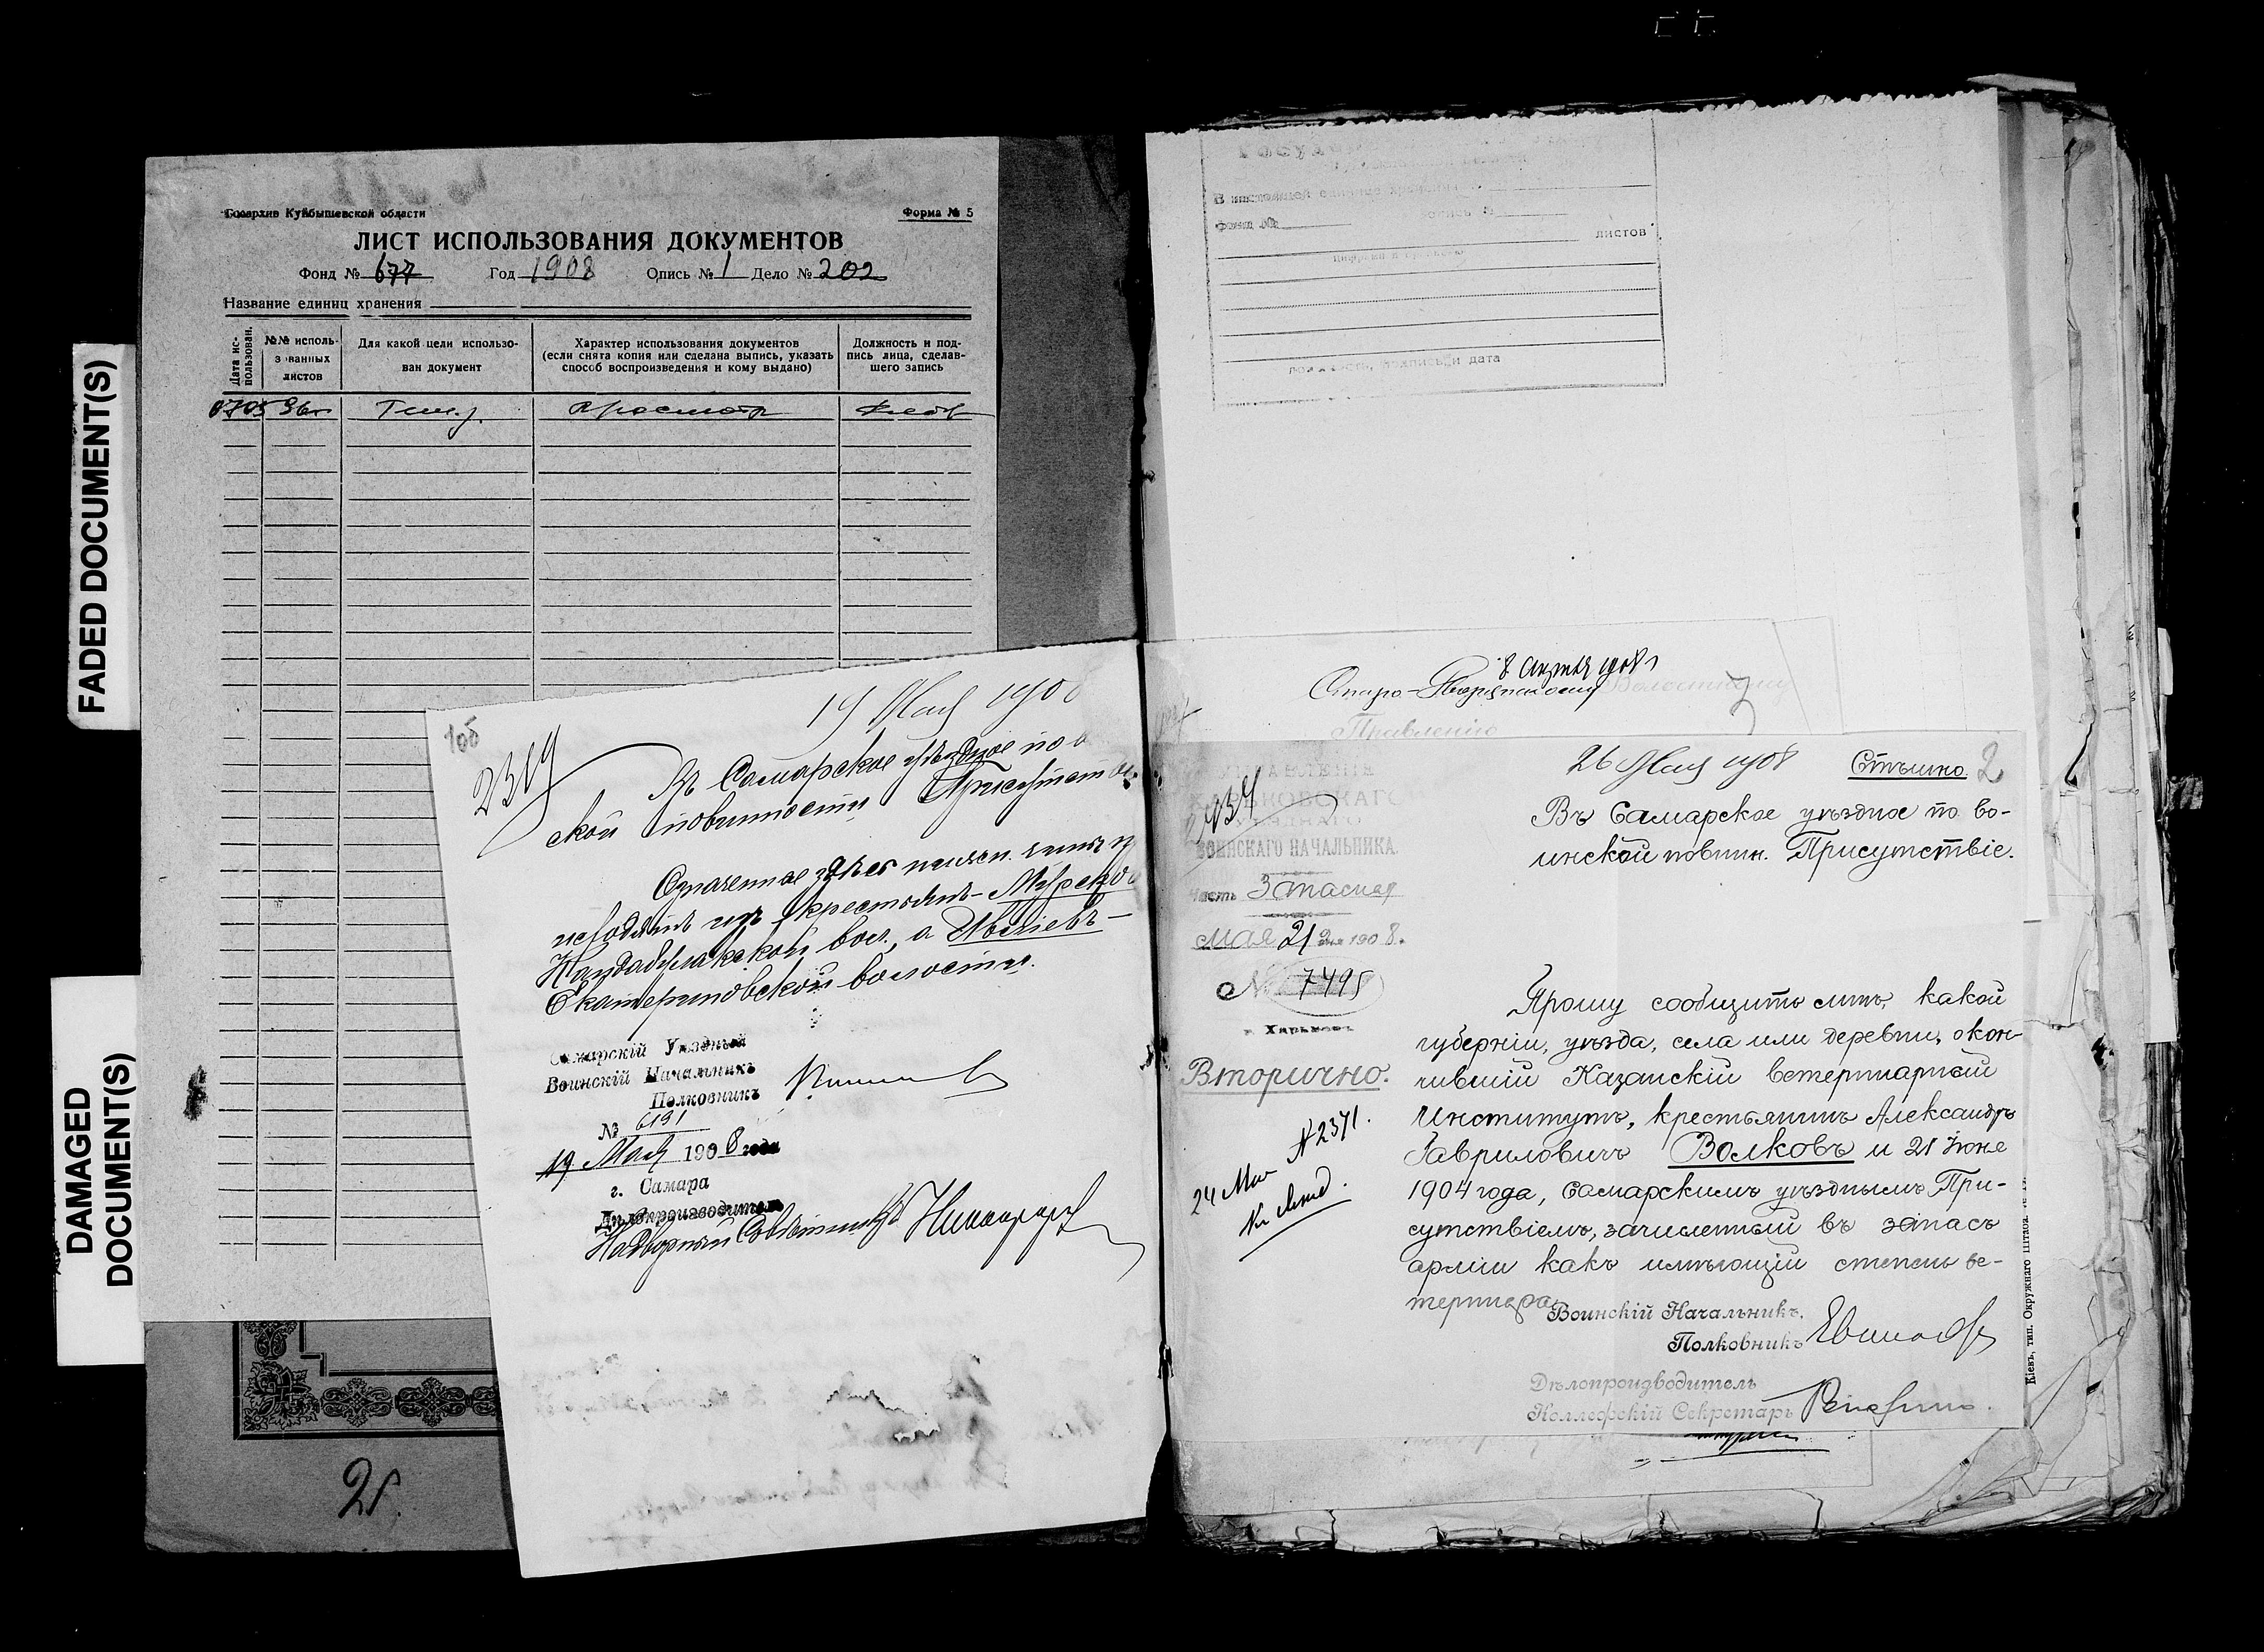 FADED DOCUMENT(S)
DAMAGED
DOCUMENT(S)
Госархив Куйбышевской области
Форма № 5
ЛИСТ ИСПОЛЬЗОВАНИЯ ДОКУМЕНТОВ
Фонд № 677 Год 1908 Опись № 1 Дело № 202
Название единиц хранения
Дата ис-
пользован.
№№ исполь-
з ванных
листов
Для какой цели использо-
ван документ
Характер использования документов
(если снята копия или сделана выпись, указать
способ воспроизведения и кому выдано)
Должность и под-
пись лица, сделав-
шего запись
просмотр
2г.
1об
19 Мая 1908
2319
Въ Самарское уѣздное по
ской повинности Присутств
Означенные здѣсь
исходятъ изъ крестьянъ
Кандабулакской вол., а Ивліевъ-
Екатериновской волости.
Самарскій Уѣздный
Воинскій Начальникъ
Полковникъ
№ 6191
19 Мая 1908 года
г. Самара
Дѣлопроизводитель
Надворный Совѣтникъ
листов
подпись и дата
8 Апрѣля 1908 г
Волостному
Правленію
УПРАВЛЕНІЕ
ХАРЬКОВСКАГО
УѢЗДНАГО
ВОИНСКАГО НАЧАЛЬНИКА.
Часть Запасная
Мая 21 дня 1908.
№ 7495
г. Харьковъ
Вторично.
№ 2371.
24 Мая
26 Мая 1908 Спѣшно. 2
Въ Самарское уѣздное по во-
инской повин. Присутствіе.
Прошу сообщить мнѣ, какой
губерніи, уѣзда, села или деревни, окон-
чившій Казанскій Ветеринарный
Институтъ, крестьянинъ Александръ
Гавриловичъ Волковъ и 21 Іюня
1904 года, Самарскимъ уѣзднымъ При-
сутствіемъ, зачисленный въ запасъ
арміи какъ имѣющій степень ве-
теринара.
Воинскій Начальникъ,
Полковникъ
Дѣлопроизводитель
Коллежскій Секретарь
Кіевъ, тип. Окружнаго Штаба.